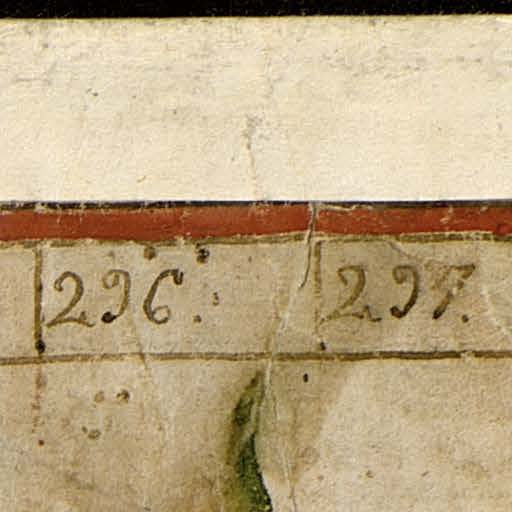 296. 297.